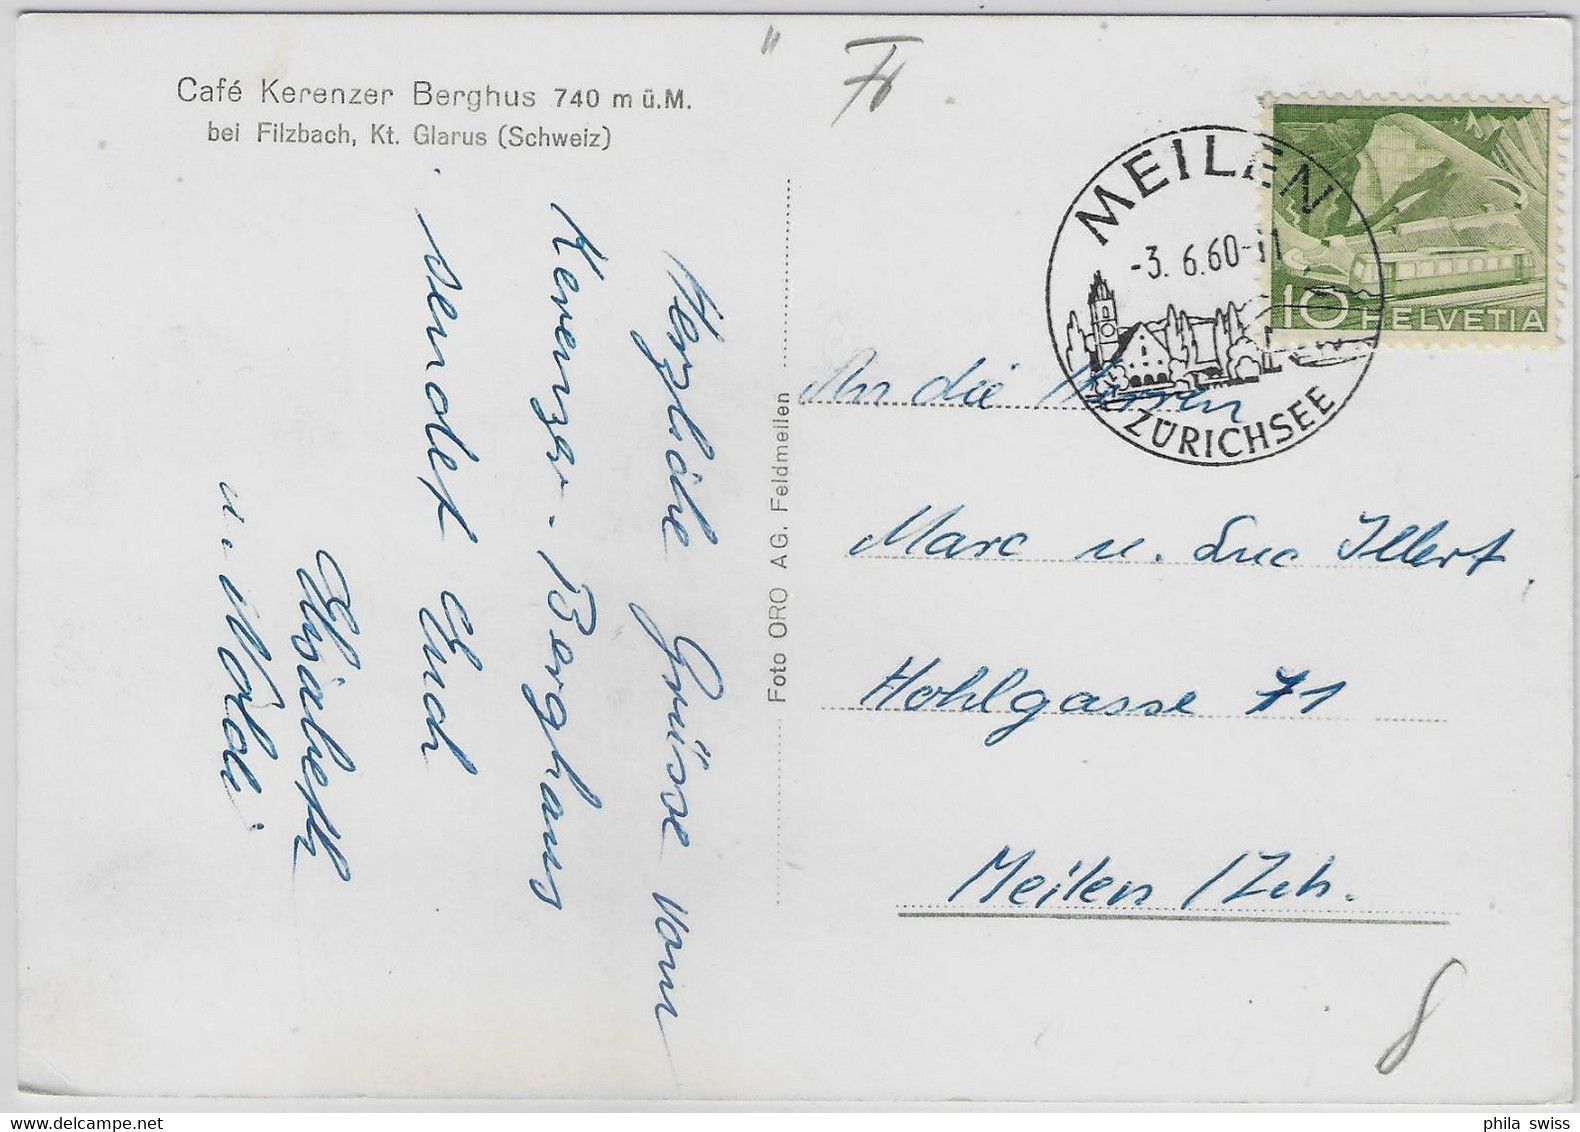 Café Kerenzer Berghus 740 m ü.M.
bei Filzbach, Kt. Glarus (Schweiz)
Herzliche Grüsse vom
Kerenzer-Berghaus
sendet Euch
Elisabeth
u. Noldi.
Foto ORO AG. Feldmeilen
MEILEN
-3. 6.60-11
ZÜRICHSEE
10 HELVETIA
An die Herren
Marc u. Luc Illert,
Hohlgasse 71
Meilen / Zch.
8
phila swiss